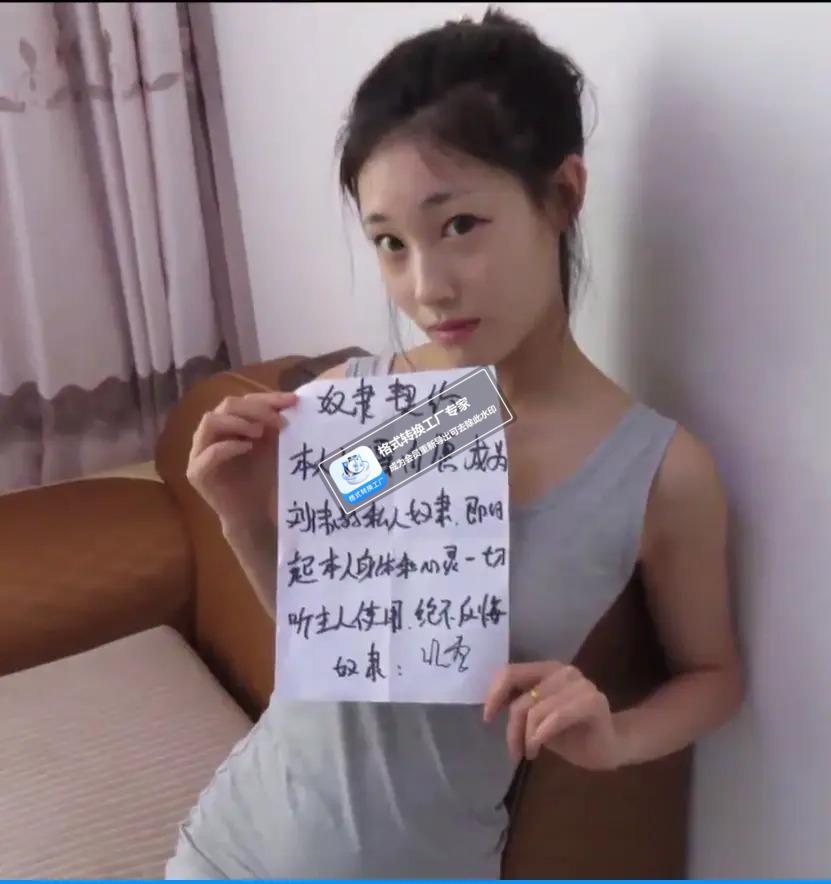 奴隶契约
本人
成为
刘
私人奴隶.即日
起本人身体和心灵一切
听主人使用.绝不反悔
奴隶:
格式转换工厂专家
成为会员重新导出可去除此水印
格式转换工厂